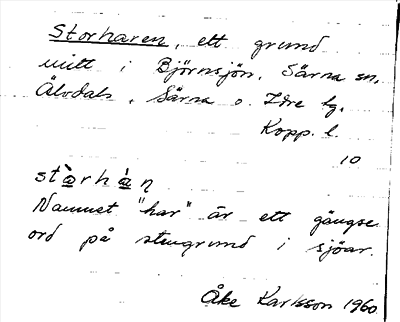 Storharen, ett grund
mitt i Björnsjön, Särna sn,
Älvdals, Särna o. Idre tg,
Kopp. l.
10
stàrhàn
Namnet "har" är ett gängse
ord på stengrund i sjöar.
Åke Karlsson 1960